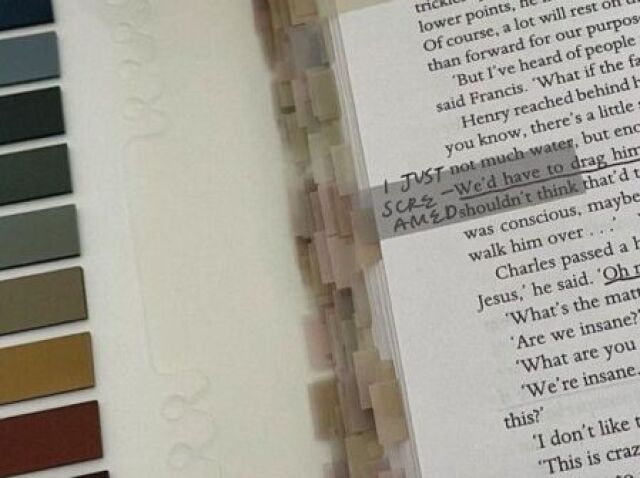 lower points, he
Of course, a lot will rest on
than forward for our purpos
'But I've heard of people
said Francis. 'What if the fa
Henry reached behind h
you know, there's a little
I JUST not much water, but eno
SCRE —We'd have to drag him
AMED shouldn't think that'd t
was conscious, maybe
walk him over . . .'
Charles passed a h
Jesus,' he said. 'Oh
'What's the matt
'Are we insane?'
'What are you
'We're insane.
this?'
'I don't like t
'This is craz
to